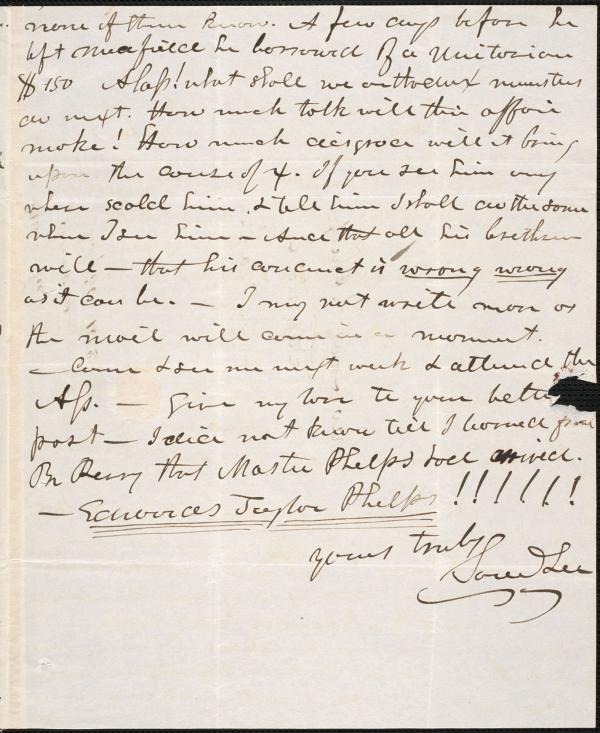 none of them know. A few days before he
left Medfield he borrowed of a Unitarian
$150 Alass! what shall we orthodox ministers
do next. How much talk will this affair
make! How much disgrace will it bring
upon the cause of X. If you see him any
where scold him, & tell him I shall do the same
when I see him – And that all his brethren
will – that his conduct is wrong wrong
as it can be. – I may not write more as
the mail will come in a moment.
– Come & see me next week & attend the
Ass. – Give my love to your better
part – I did not know till I learned from
Br Perry that Master Phelps had arrived.
– Edwards Taylor Phelps !!!!!!!
yours truly
Saml Lee